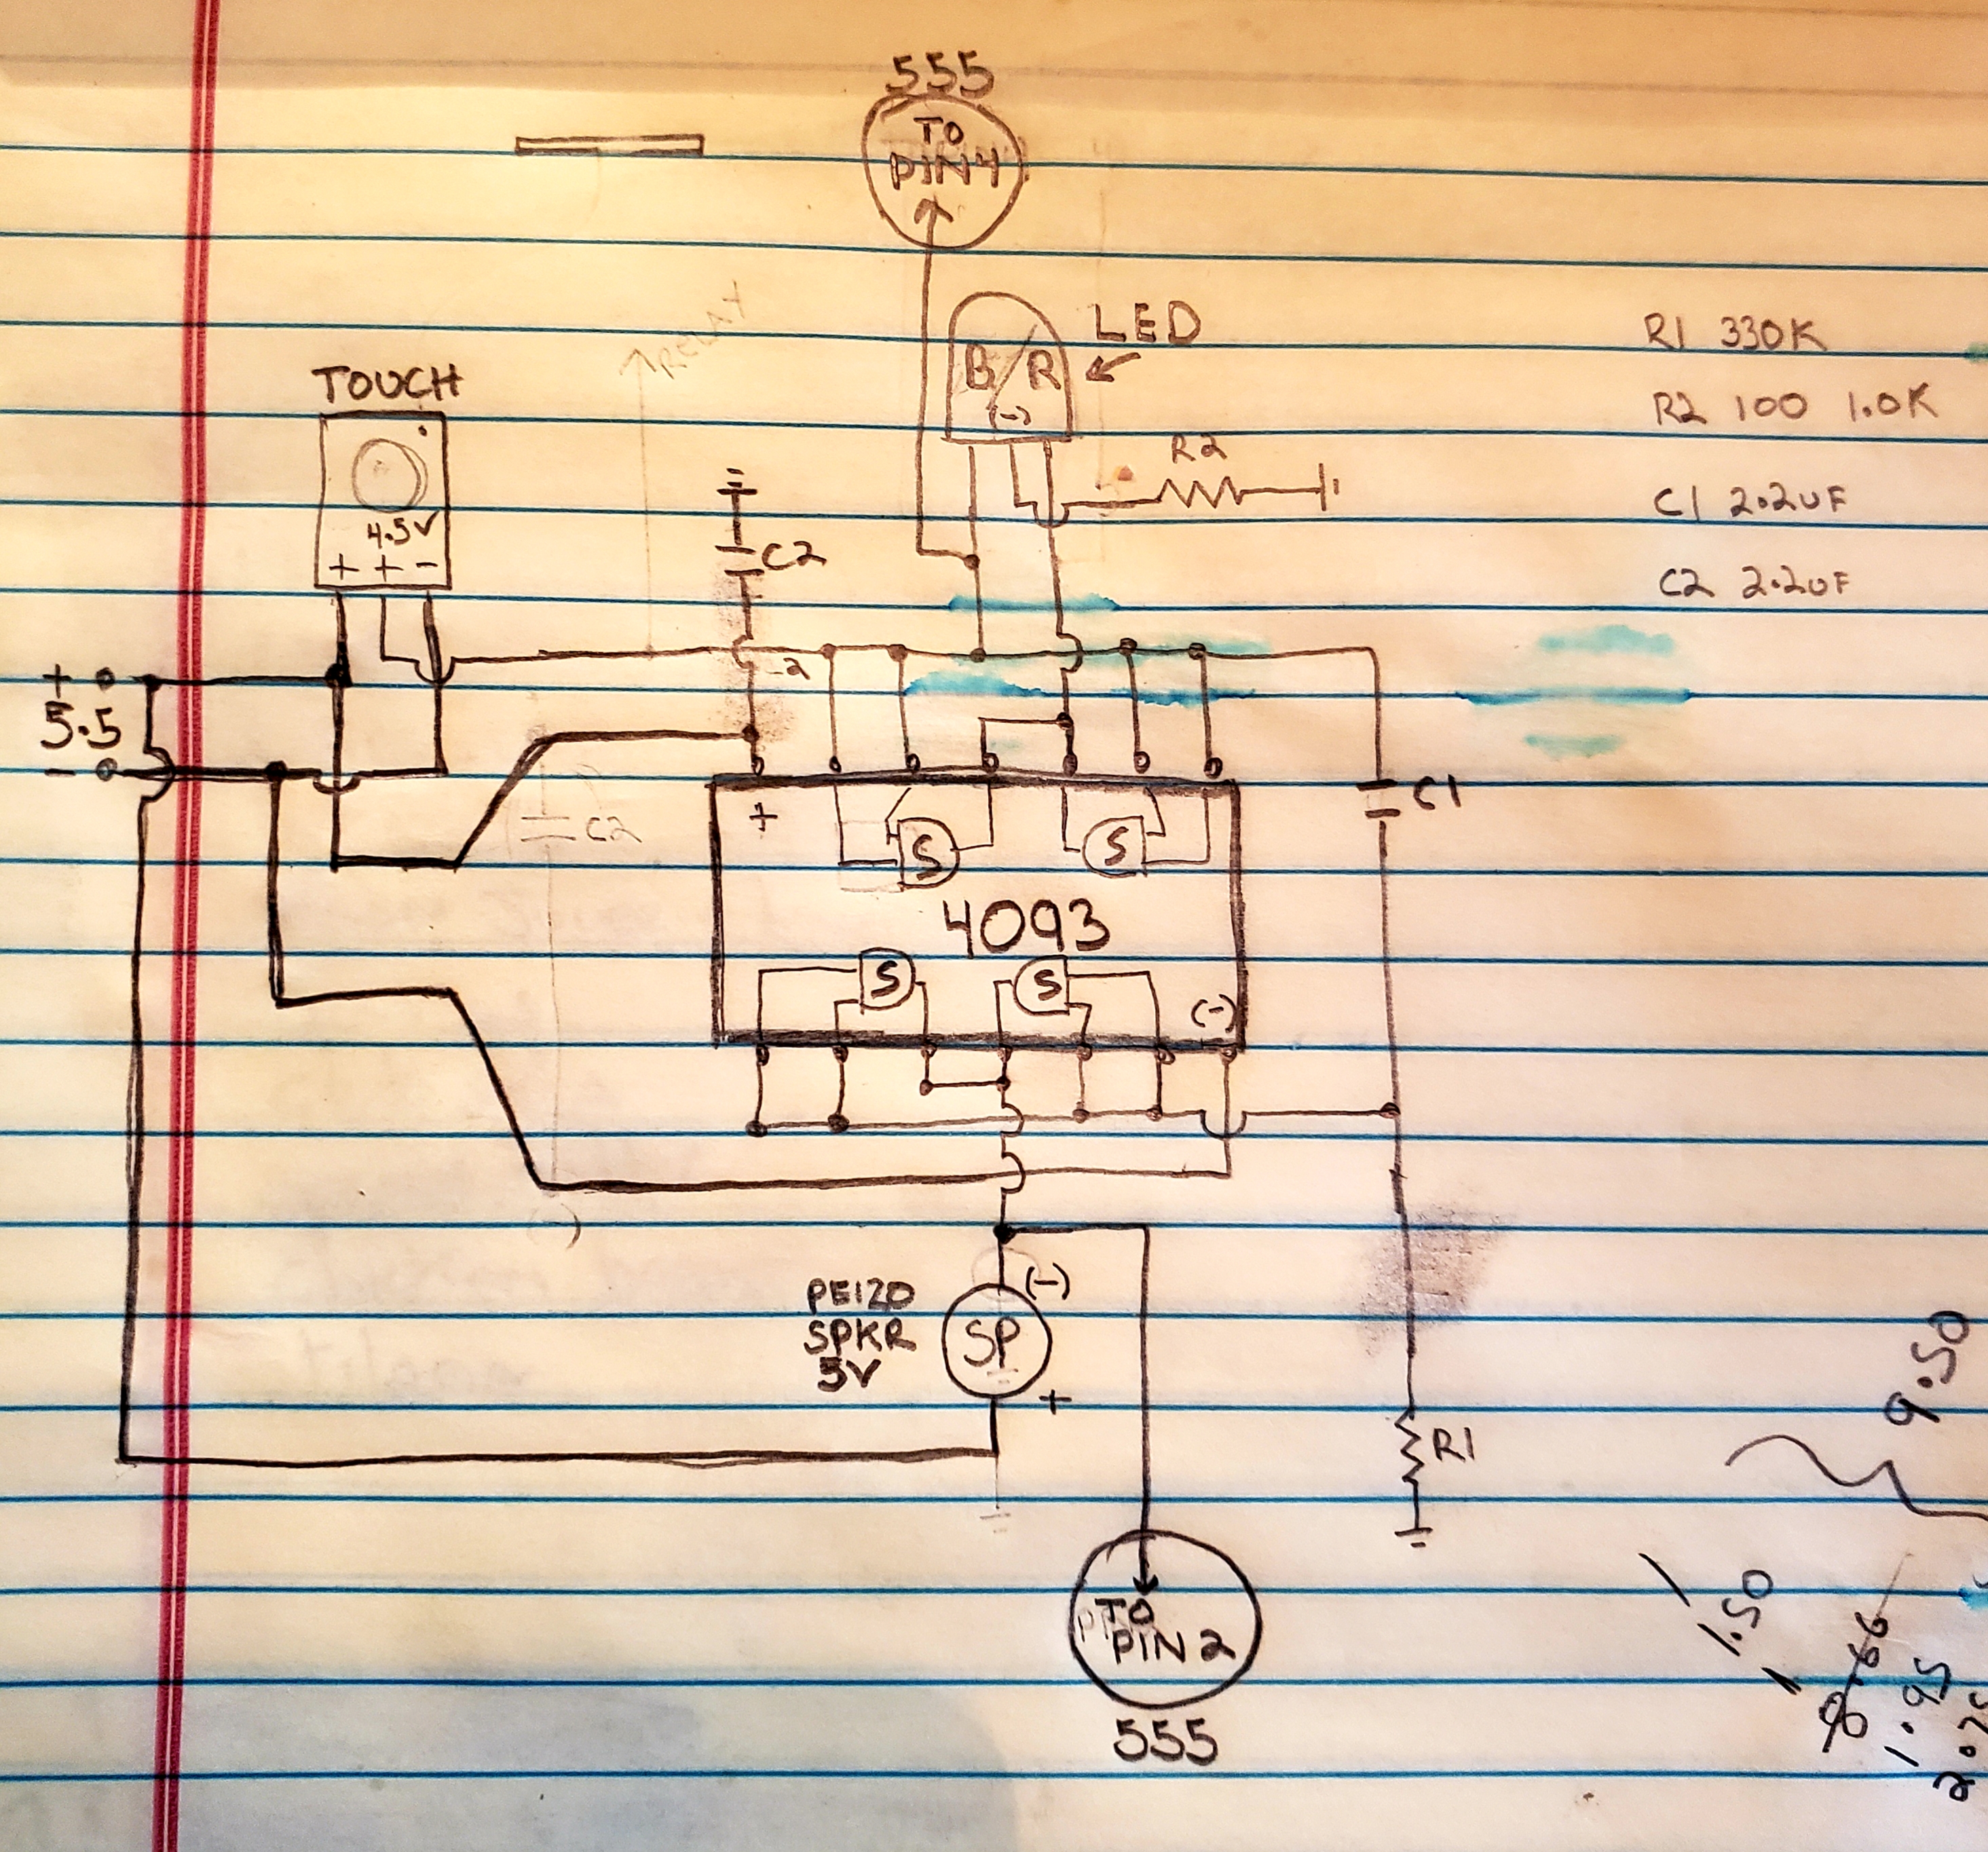 555
TO
PIN 4
RELAY
LED
B/R
(-)
R1 330K
R2 100 1.0K
C1 2.2uF
C2 2.2uF
TOUCH
4.5V
+ + -
R2
C2
-2
+
5.5
-
+
C1
C2
S
S
4093
S
S
(-)
PEIZO
SPKR
5V
(-)
SP
+
R1
TO
PIN 2
555
9.50
1.50
8.66
1.95